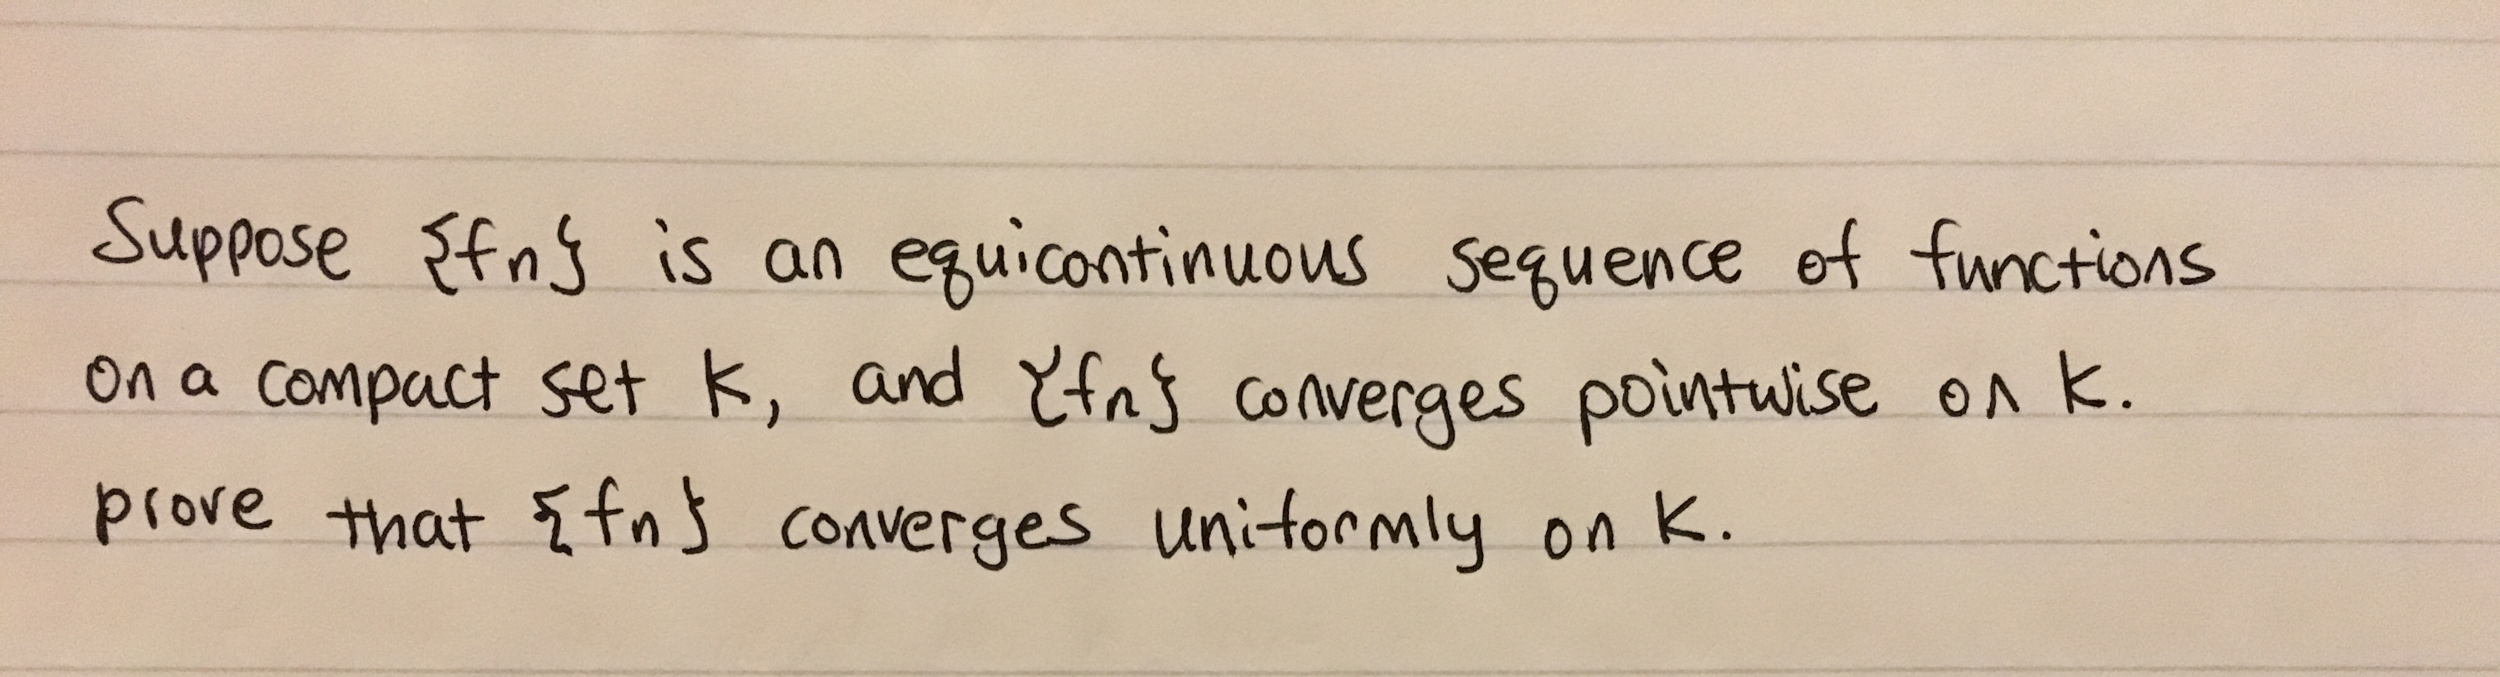 Suppose {fn} is an equicontinuous sequence of functions
on a compact set K, and {fn} converges pointwise on K.
prove that {fn} converges uniformly on K.